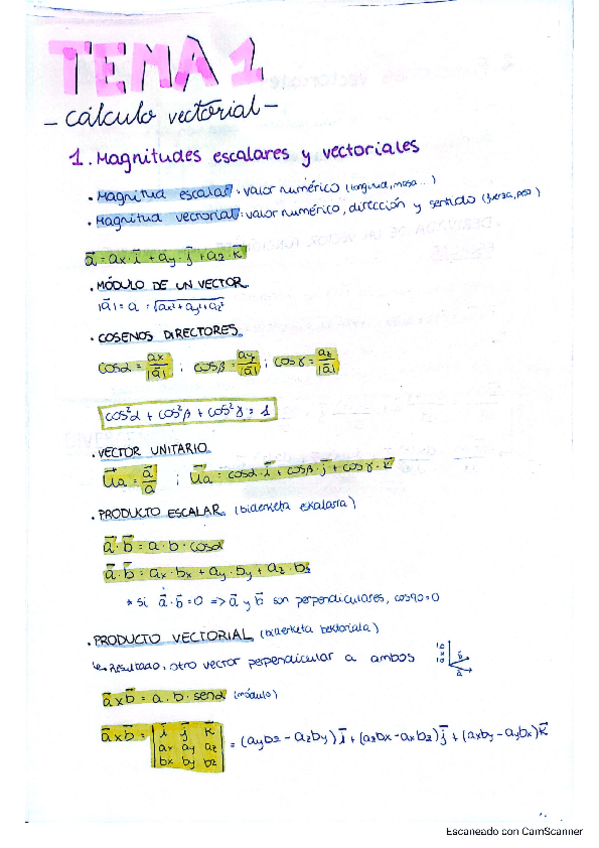 TEMA 1
- cálculo vectorial -
1. Magnitudes escalares y vectoriales
• Magnitud escalar: valor numérico (longitud, masa...)
• Magnitud vectorial: valor numérico, dirección y sentido (fuerza, peso)
a⃗ = ax · i⃗ + ay · j⃗ + az · k⃗
• MÓDULO DE UN VECTOR
|a⃗| = a = √ax²+ay²+az²
• COSENOS DIRECTORES
cosα = ax/|a⃗| ; cosβ = ay/|a⃗| ; cosγ = az/|a⃗|
cos²α + cos²β + cos²γ = 1
• VECTOR UNITARIO
u⃗a = a⃗/a ; u⃗a = cosα · i⃗ + cosβ · j⃗ + cosγ · k⃗
• PRODUCTO ESCALAR (biderketa eskalarra)
a⃗ · b⃗ = a · b · cosα
a⃗ · b⃗ = ax · bx + ay · by + az · bz
* si a⃗ · b⃗ = 0 => a⃗ y b⃗ son perpendiculares, cos90=0
• PRODUCTO VECTORIAL (biderketa bektoriala)
↳ Resultado, otro vector perpendicular a ambos
a⃗ x b⃗ = a · b · senα (módulo)
a⃗ x b⃗ = | i⃗ j⃗ k⃗ ax ay az bx by bz | = (aybz - azby) i⃗ + (azbx - axbz) j⃗ + (axby - aybx) k⃗
Escaneado con CamScanner